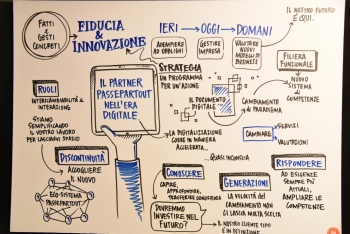 FATTI
&
GESTI
CONCRETI
FIDUCIA
&
INNOVAZIONE
IERI → OGGI → DOMANI
ADEMPIERE
AD OBBLIGHI
GESTIRE
IMPRESA
VALUTARE
NUOVI
MODELLI DI
BUSINESS
IL NOSTRO FUTURO
È QUI.
FILIERA
FUNZIONALE
NUOVO
SISTEMA DI
COMPETENZE
STRATEGIA
UN PROGRAMMA
PER
UN'AZIONE
IL DOCUMENTO
DIGITALE
CAMBIAMENTO
DI PARADIGMA
IL PARTNER
PASSEPARTOUT
NELL'ERA
DIGITALE
RUOLI
INTERCAMBIABILITÀ &
INTERAZIONE
STIAMO
SEMPLIFICANDO
IL VOSTRO LAVORO
PER LASCIARVI SPAZIO
LA DIGITALIZZAZIONE
CORRE IN MANIERA
ACCELERATA...
CAMBIARE
SERVIZI
VALUTAZIONI
...QUASI INCONSCIA
DISCONTINUITÀ
ACCOGLIERE
IL NUOVO
ECO-SISTEMA
PASSEPARTOUT
CONOSCERE
CAPIRE,
APPROFONDIRE,
TRASFERIRE CONOSCENZA
DOVREMMO
INVESTIRE NEL
FUTURO?
GENERAZIONI
LA VELOCITÀ DEL
CAMBIAMENTO NON
CI LASCIA MOLTA SCELTA
IL NOSTRO CLIENTE TIPO
È IN DEFINIZIONE
RISPONDERE
AD ESIGENZE
SEMPRE PIÙ
ATTUALI,
AMPLIARE LE
COMPETENZE